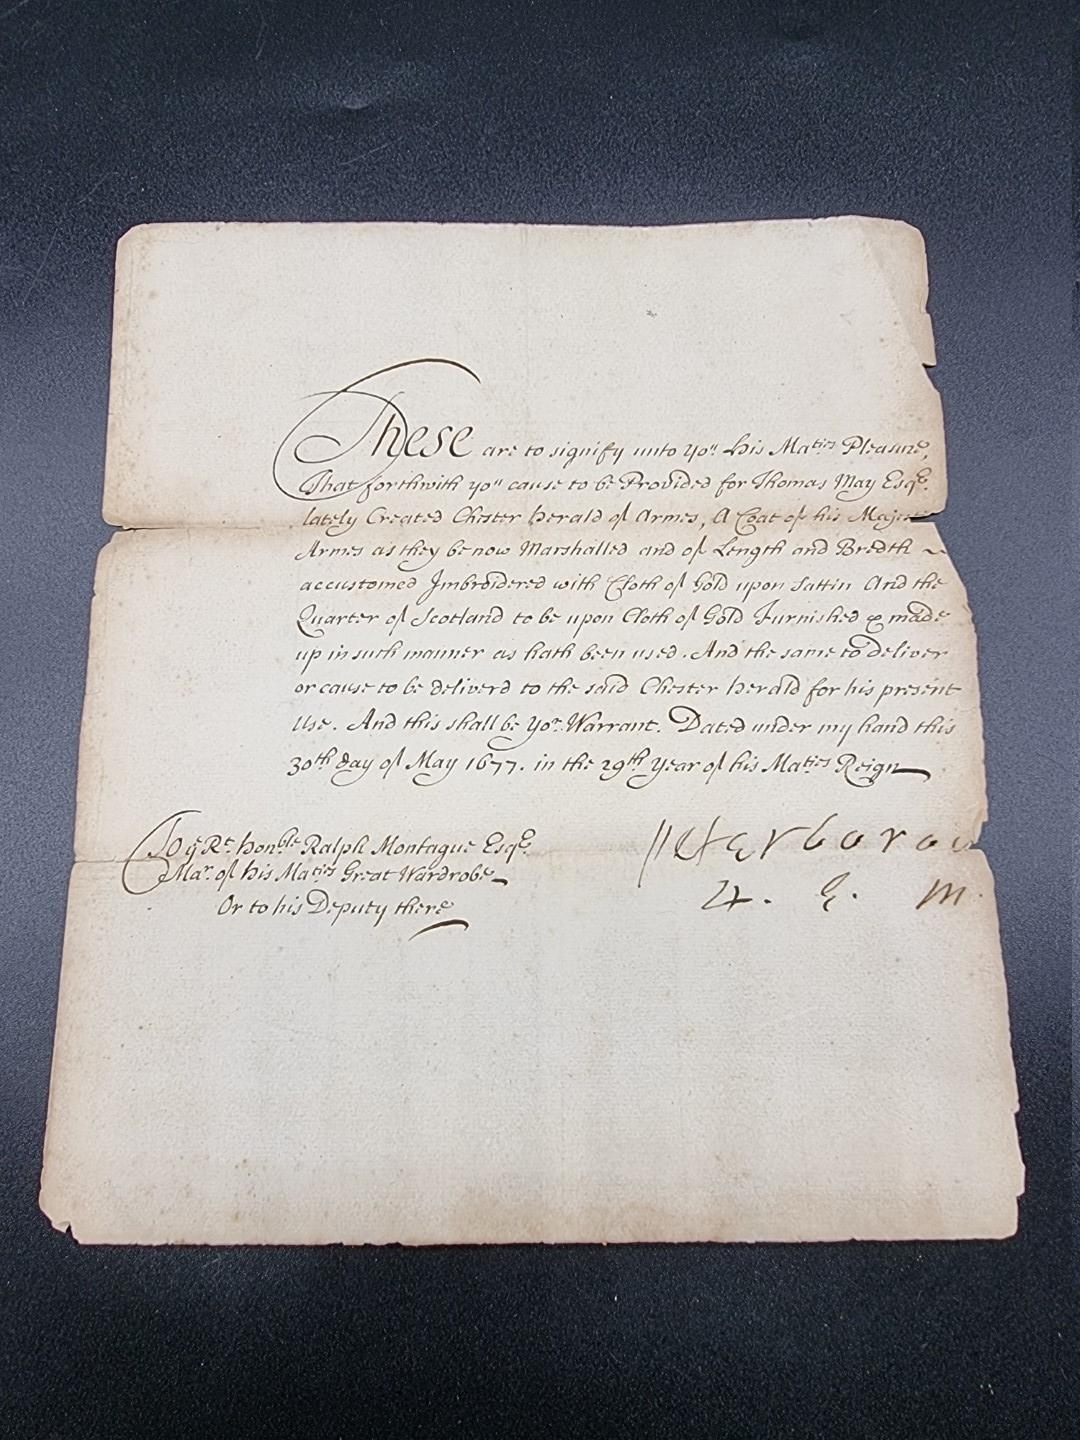 These are to signify unto yo^u His Ma^ties Pleasure,
That forthwith yo^u cause to be Provided for Thomas May Esq^e.
lately Created Chester Herald of Armes, A Coat of his Majest
Armes as they be now Marshalled and of Length and Bredth ~
accustomed Imbroidered with Cloth of Gold upon Sattin And the
Quarter of Scotland to be upon Cloth of Gold Furnished & made
up in such manner as hath been used. And the same to deliver
or cause to be deliverd to the said Chester Herald for his present
Use. And this shall be yo^r Warrant. Dated under my hand this
30^th day of May 1677. in the 29^th Year of his Ma^ties Reign
To y^e R^t. Hon^ble Ralph Montague Esq^e.
Ma^r. of his Ma^ties Great Wardrobe
Or to his Deputy there
Peterborow
E. M.